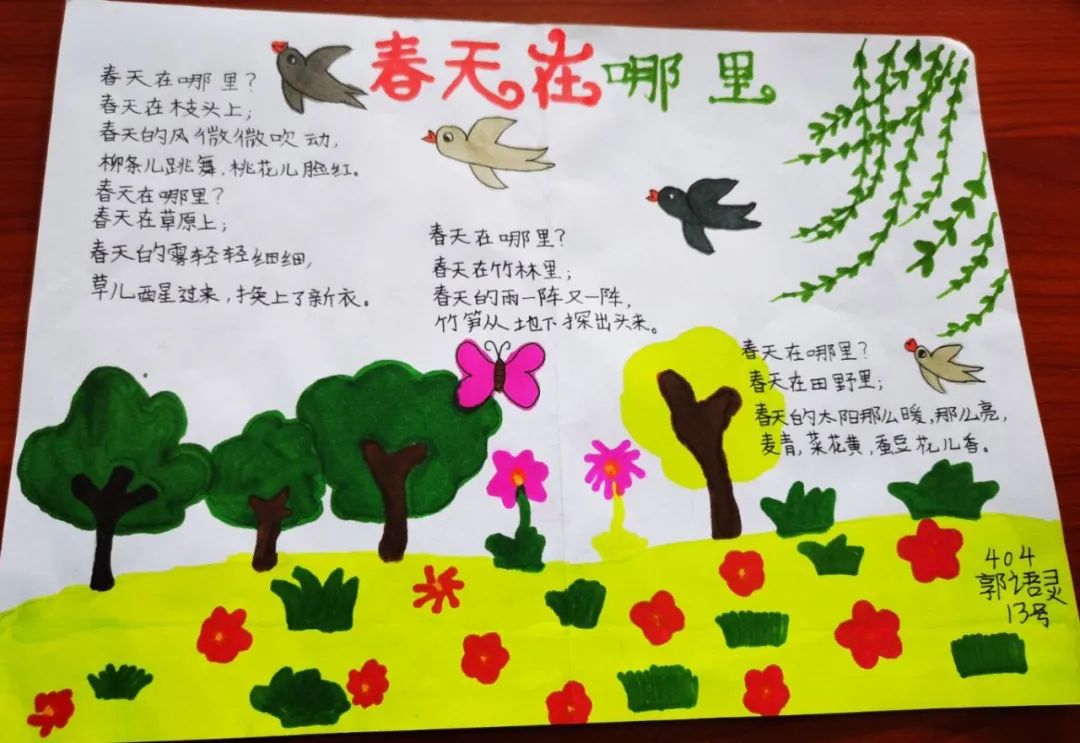 春天在哪里
春天在哪里？
春天在枝头上；
春天的风微微吹动，
柳条儿跳舞，桃花儿脸红。
春天在哪里？
春天在草原上；
春天的雾轻轻细细，
草儿醒过来，换上了新衣。
春天在哪里？
春天在竹林里；
春天的雨一阵又一阵，
竹笋从地下探出头来。
春天在哪里？
春天在田野里；
春天的太阳那么暖，那么亮，
麦青，菜花黄，蚕豆花儿香。
404
郭语灵
13号